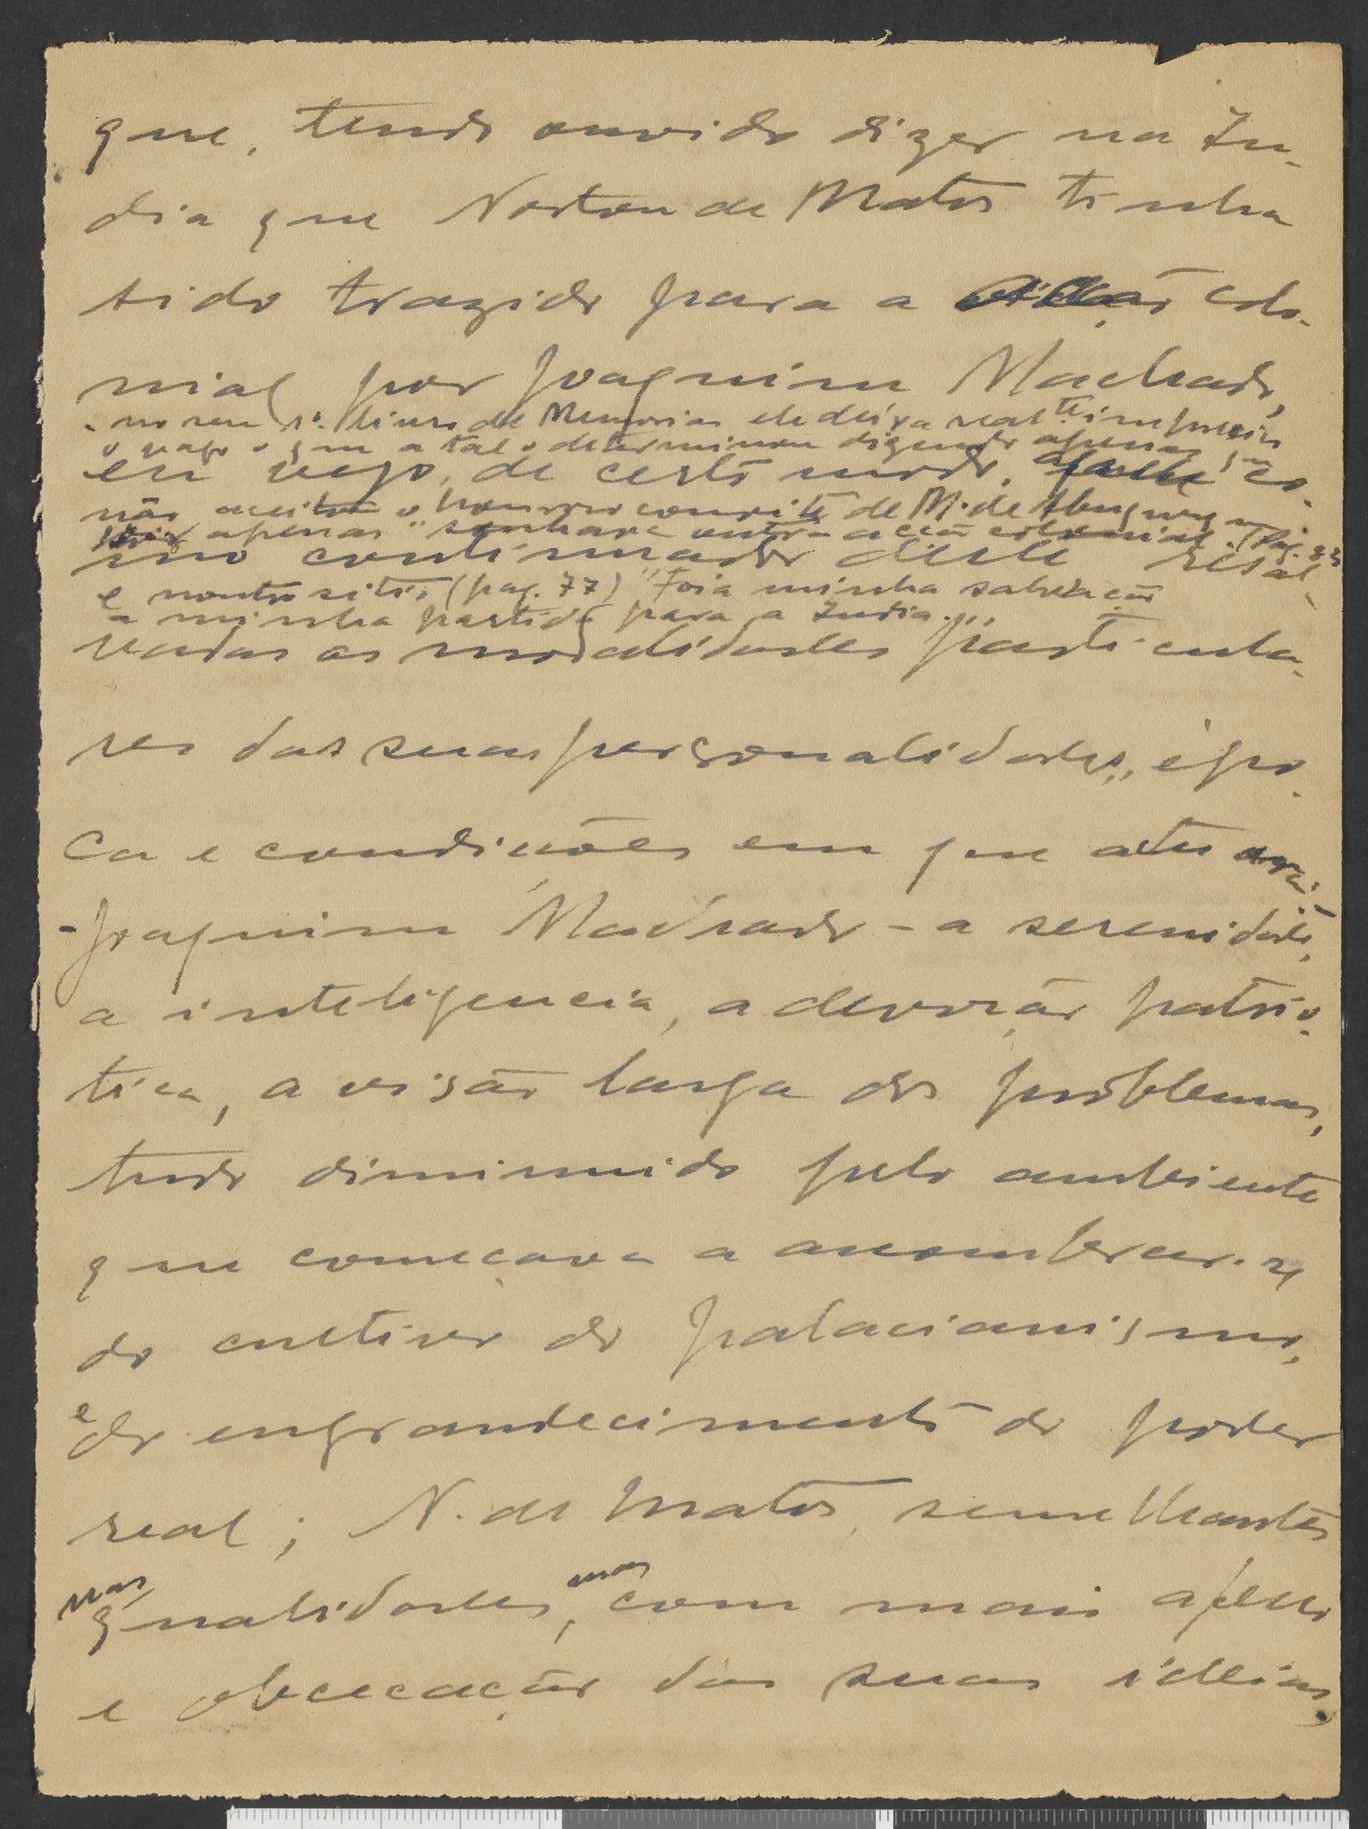 que, tendo ouvido dizer na In-
dia que Norton de Matos tinha
sido trazido para a acção colo-
nial por Joaquim Machado,
- no seu 1º livro de Memorias ele deixa realte impreciso
o vago o que a tal o determinou dizendo apenas que
eu vejo, de certo modo, co-
não aceitou o honroso convite de M. de Albuquerque
apenas "sonhava outra acção colonial" (pag. 33
mo continuador deste resal-
e noutro sitio (pag. 77) "Foi a minha salvação
a minha partida para a India."
vadas as modalidades particula-
res das suas personalidades, épo-
ca e condições em que
- Joaquim Machado - a serenidade,
a inteligencia, a devoção patrio-
tica, a visão larga dos problemas,
tudo diminuido pelo ambiente
que começava a assombrear-se
do cultivo do palacianismo,
e do engrandecimento do poder
real; N. de Matos, semelhantes
nas qualidades, mas com mais apego
e obcecação das suas ideias,